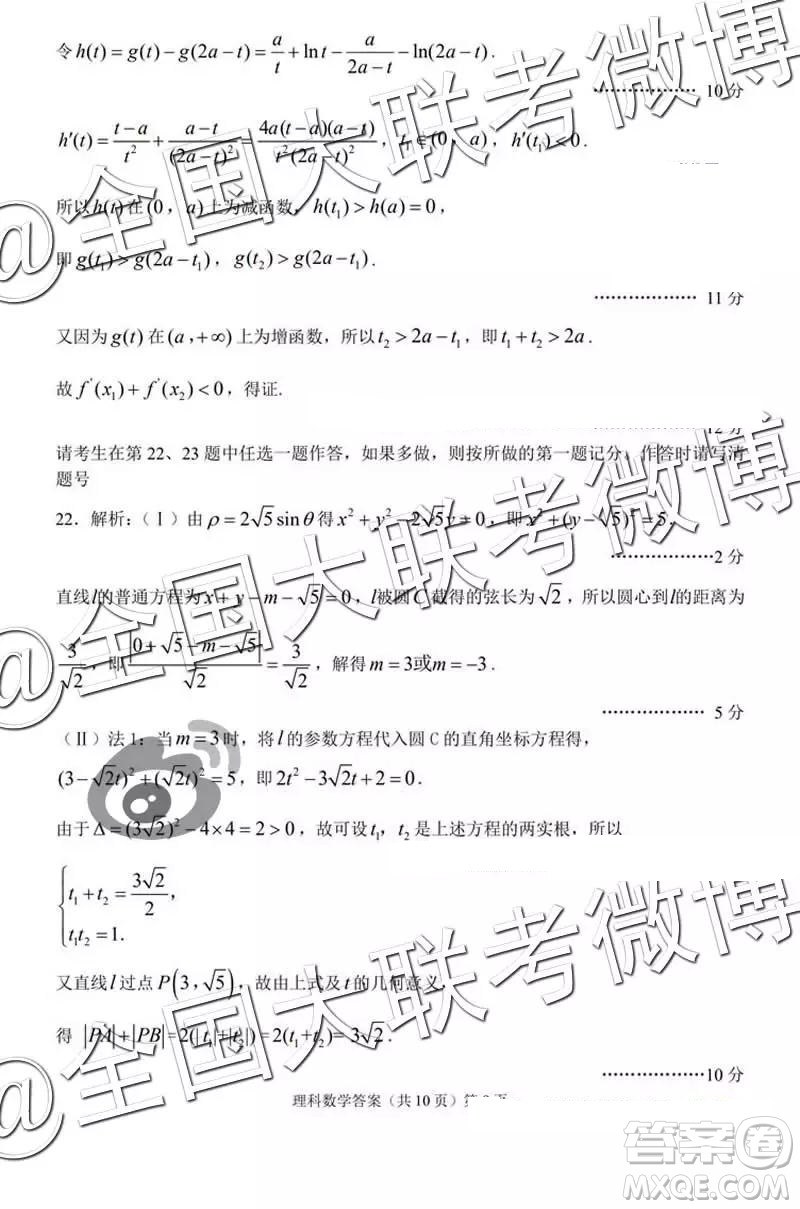 令h(t)=g(t)-g(2a-t)=a/t+ln t-a/(2a-t)-ln(2a-t).
………………10分
h′(t)=(t-a)/t²+(a-t)/(2a-t)²=4a(t-a)(a-t)/(t²(2a-t)²)，t₁∈(0，a)，h′(t₁)<0.
所以h(t)在(0，a)上为减函数，h(t₁)>h(a)=0，
即g(t₁)>g(2a-t₁)，g(t₂)>g(2a-t₁).
………………11分
又因为g(t)在(a,+∞)上为增函数，所以t₂>2a-t₁，即t₁+t₂>2a.
故f′(x₁)+f′(x₂)<0，得证.
12分
请考生在第22、23题中任选一题作答，如果多做，则按所做的第一题记分．作答时请写清
题号
22．解析：(Ⅰ)由ρ=2√5sinθ得x²+y²-2√5y=0，即x²+(y-√5)²=5.
………………2分
直线l的普通方程为x+y-m-√5=0，l被圆C截得的弦长为√2，所以圆心到l的距离为
3/√2，即|0+√5-m-√5|/√2=3/√2，解得m=3或m=-3.
………………5分
(Ⅱ)法1：当m=3时，将l的参数方程代入圆C的直角坐标方程得，
(3-√2t)²+(√2t)²=5，即2t²-3√2t+2=0.
由于Δ=(3√2)²-4×4=2>0，故可设t₁，t₂是上述方程的两实根，所以
{t₁+t₂=3√2/2，
t₁t₂=1.
又直线l过点P(3，√5)，故由上式及t的几何意义，
得 |PA|+|PB|=2(|t₁|+|t₂|)=2(t₁+t₂)=3√2.
………………10分
理科数学答案（共10页）第
@全国大联考微博
@全国大联考微博
答案卷
MXQE.COM